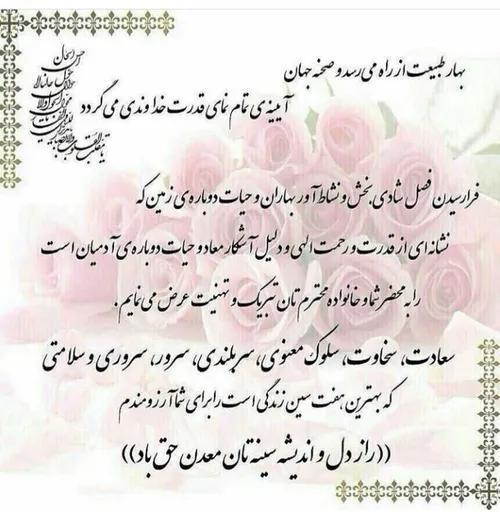 بهار طبیعت از راه می رسد و صحنه جهان
آیینه ی تمام نمای قدرت خداوندی می گردد
یا مقلب القلوب والابصار
حول حالنا
احسن الحال
فرارسیدن فصل شادی بخش و نشاط آور بهاران و حیات دوباره ی زمین که
نشانه ای از قدرت و رحمت الهی و دلیل آشکار معاد و حیات دوباره ی آدمیان است
را به محضر شما و خانواده محترم تان تبریک و تهنیت عرض می نمایم .
سعادت، سخاوت، سلوک معنوی، سربلندی، سرور، سروری و سلامتی
که بهترین هفت سین زندگی است را برای شما آرزومندم
((راز دل و اندیشه سینه تان معدن حق باد))